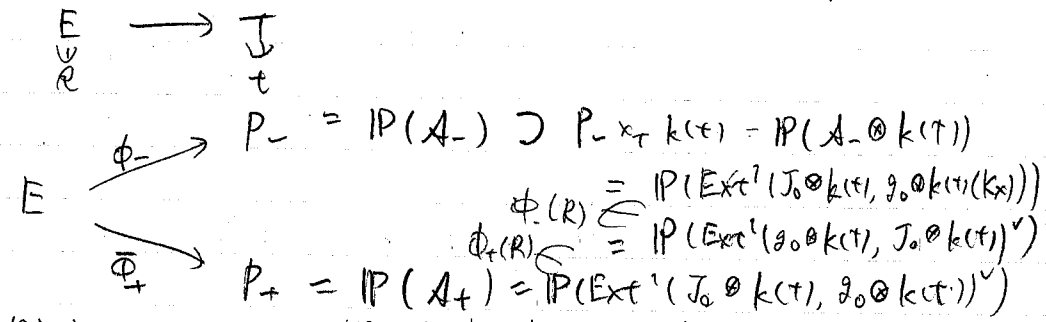 E ⟶ T
∪ ↓
R t
P₋ = ℙ(A₋) ⊃ P₋ ×_T k(t) = ℙ(A₋ ⊗ k(t))
ϕ₋
= ℙ(Ext¹(J₀⊗k(t), g₀⊗k(t)(K_X)))
E
Φ₋(R) ∈ = ℙ(Ext¹(g₀⊗k(t), J₀⊗k(t))^∨)
Φ₊(R) ∈
Φ₊
P₊ = ℙ(A₊) = ℙ(Ext¹(J₀⊗k(t), g₀⊗k(t))^∨)